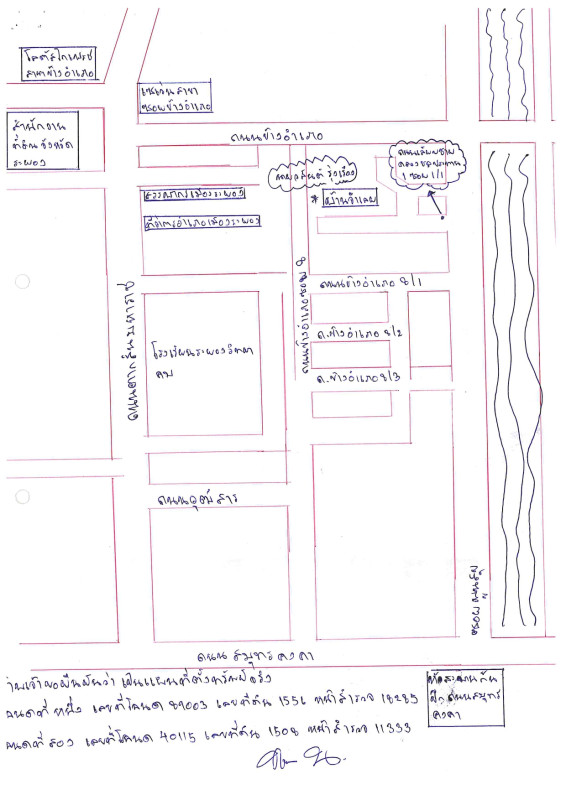 โลตัสโกเฟรช
สาขาข้างอำเภอ
ซอยข้างอำเภอ
สำนักงาน
ที่ดินจังหวัด
ระยอง
ถนนข้างอำเภอ
ถนนเลียบชาย
คลองชลประทาน
1 ซอย 1/1
รุ่งเรือง
* บ้านจำเลย
สรรพากรเมืองระยอง
ที่ว่าการอำเภอเมืองระยอง
ถนนตากสินมหาราช
ถนนข้างอำเภอซอย 8
ถนนข้างอำเภอ 8/1
ถ.ข้างอำเภอ 8/2
ถ.ข้างอำเภอ 8/3
โรงเรียนระยองวิทยา
คม
ถนนอุดมสาร
ถนนสมุทรคงคา
ข้าพเจ้าขอยืนยันว่า เป็นแผนที่ตั้งทรัพย์จริง
โฉนดที่ หนึ่ง เลขที่โฉนด 89003 เลขที่ดิน 1556 หน้าสำรวจ 18285
โฉนดที่ สอง เลขที่โฉนด 40115 เลขที่ดิน 1508 หน้าสำรวจ 11333
ถนนสมุทร
คงคา